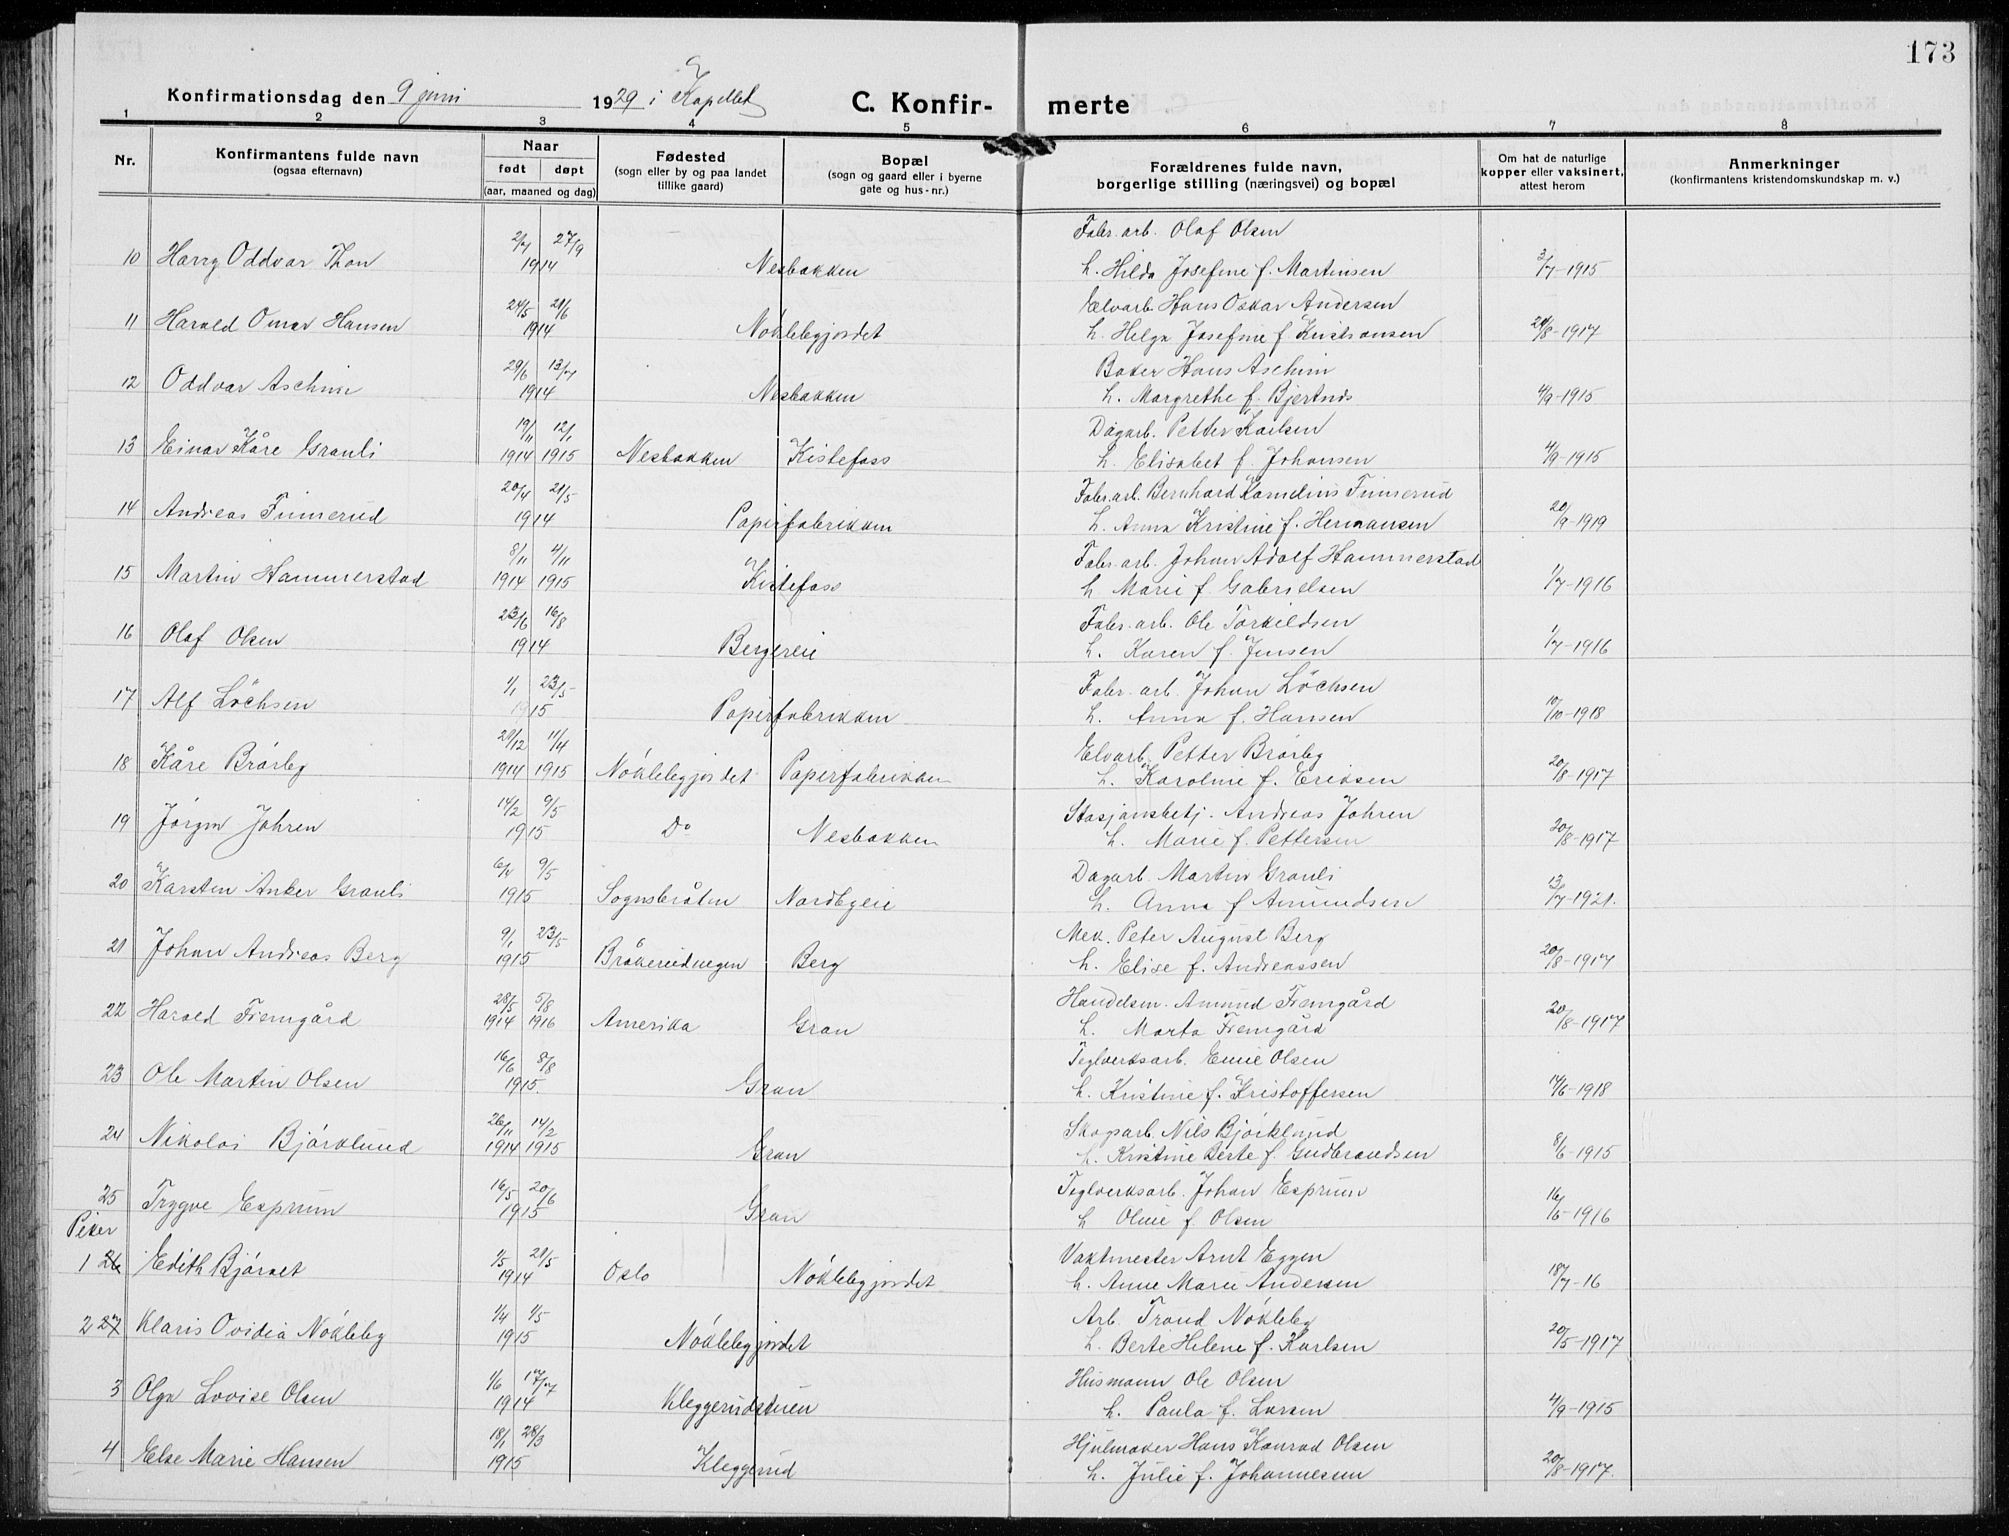 173
Konfirmationsdag den 9 juni 1929 i Kapellet C. Konfir- merte
1 2 3 4 5 6 7 8
Nr. Konfirmantens fulde navn (ogsaa efternavn) Naar født døpt (aar, maaned og dag) Fødested (sogn eller by og paa landet tillike gaard) Bopæl (sogn og gaard eller i byerne gate og hus-nr.) Forældrenes fulde navn, borgerlige stilling (næringsvei) og bopæl Om hat de naturlige kopper eller vaksinert, attest herom Anmerkninger (konfirmantens kristendomskundskap m. v.)
2/7 27/9 Fabr. arb. Olaf Olsen
10 Harry Oddvar Thon 1914 Nesbakken h. Hilda Josefine f. Martinsen 3/7-1915
24/5 21/6 Elvarb. Hans Oskar Andersen
11 Harald Omar Hansen 1914 Nøklebyjordet h. Helga Josefine f. Kristiansen 20/8-1917
29/6 13/7 Baker Hans Aschim
12 Oddvar Aschim 1914 Nesbakken h. Margrethe f. Bjertnæs 4/9-1915
19/11 12/1 Dagarb. Petter Karlsen
13 Einar Kåre Granli 1914 1915 Nesbakken Kistefoss h. Elisabet f. Johansen 4/9-1915
20/4 21/5 Fabr. arb. Bernhard Kornelius Finnerud
14 Andreas Finnerud 1914 Papirfabrikken h. Anna Kristine f. Hermansen 20/9-1919
8/11 4/11 Fabr. arb. Johan Adolf Hammerstad
15 Martin Hammerstad 1914 1915 Kistefoss h Marie f. Gabrielsen 1/7-1916
23/6 16/8 Fabr. arb. Ole Torkildsen
16 Olaf Olsen 1914 Bergereie h. Karen f. Jensen 1/7-1916
1/1 23/5 Fabr. arb. Johan Löchsen
17 Alf Löchsen 1915 Papirfabrikken h. Anna f. Hansen 10/10-1918
29/12 11/4 Elvarb. Petter Brørby
18 Kåre Brørby 1914 1915 Nøklebyjordet Papirfabrikken h. Karoline f. Eriksen 20/8-1917
14/2 9/5 Stasjonsbetj. Andreas Johren
19 Jørgen Johren 1915 Do Nesbakken h. Marie f. Pettersen 20/8-1917
6/4 9/5 Dagarb. Martin Granli
20 Karsten Anker Granli 1915 Sognsbråten Nordbyeie h. Anna f Amundsen 13/7-1921.
9/1 23/5 Mek. Peter August Berg
21 Johan Andreas Berg 1915 Bråkerudvegen Berg h. Elise f. Andreassen 20/8-1917
28/5 5/8 Handelsm. Amund Fremgård
22 Harald Fremgård 1914 1916 Amerika Gran h. Marta Fremgård 20/8-1917
16/6 8/8 Teglverksarb. Emil Olsen
23 Ole Martin Olsen 1915. Gran h. Kristine f. Kristoffersen 14/6-1918
26/11 14/2 Skogsarb. Nils Bjørklund
24 Nikolai Bjørklund 1914 1915 Gran h. Kristine Berte f. Gudbrandsen 8/6-1915
16/5 20/6 Teglverksarb. Johan Esprum
25 Trygve Esprum 1915 Gran h Oline f. Olsen 16/6-1916
Piker
1/5 21/5 Vaktmester Arnt Eggen
1 26 Edith Bjørset 1914 Oslo Nøklebyjordet h. Anne Marie Andersen 18/7-16
1/4 1/5 Arb. Trond Nøkleby
2 27 Klaris Ovidia Nøkleby 1915 Nøklebyjordet h. Berte Helene f. Karlsen 20/5-1917
1/6 17/7 Husmann Ole Olsen
3 Olga Lovise Olsen 1914 Kleggerudstuen h. Paula f. Larsen 4/9-1915
18/1 28/3 Hjulmaker Hans Konrad Olsen
4 Else Marie Hansen 1915 Kleggerud h. Julie f. Johannesen 20/8-1917.